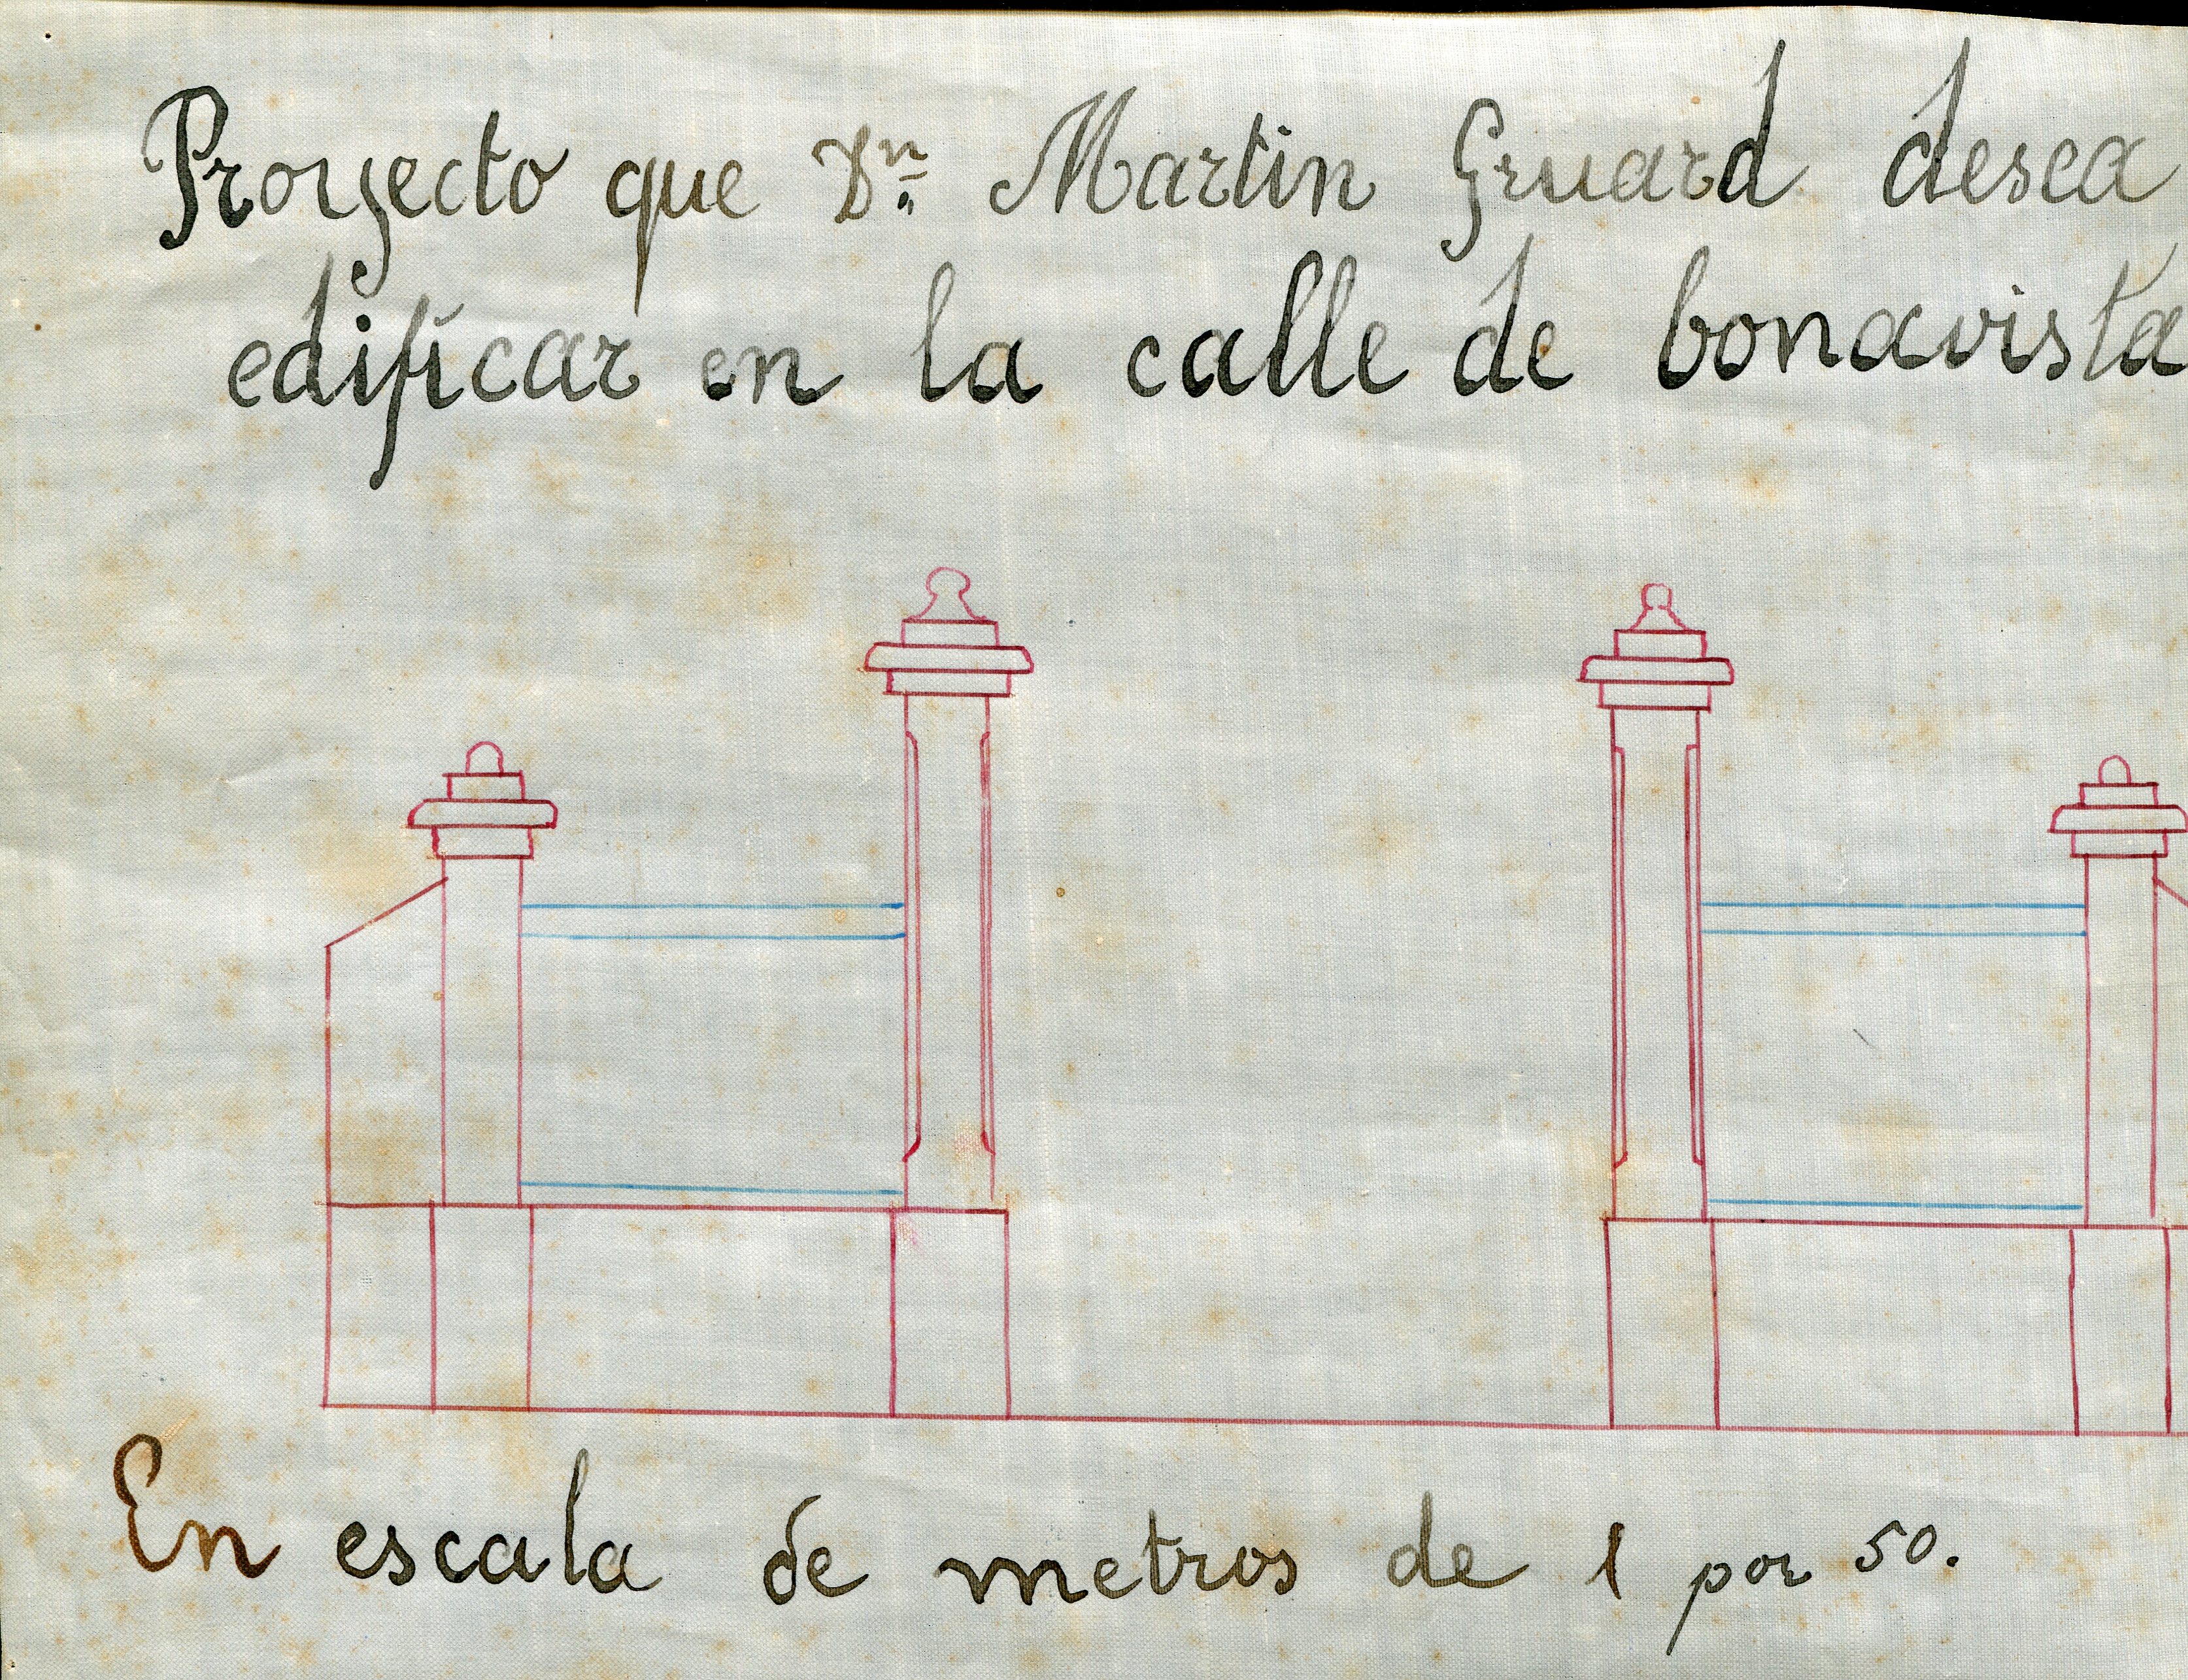 Proyecto que Dⁿ. Martin Gruard desea
edificar en la calle de bonavista
En escala de metros de 1 por 50.